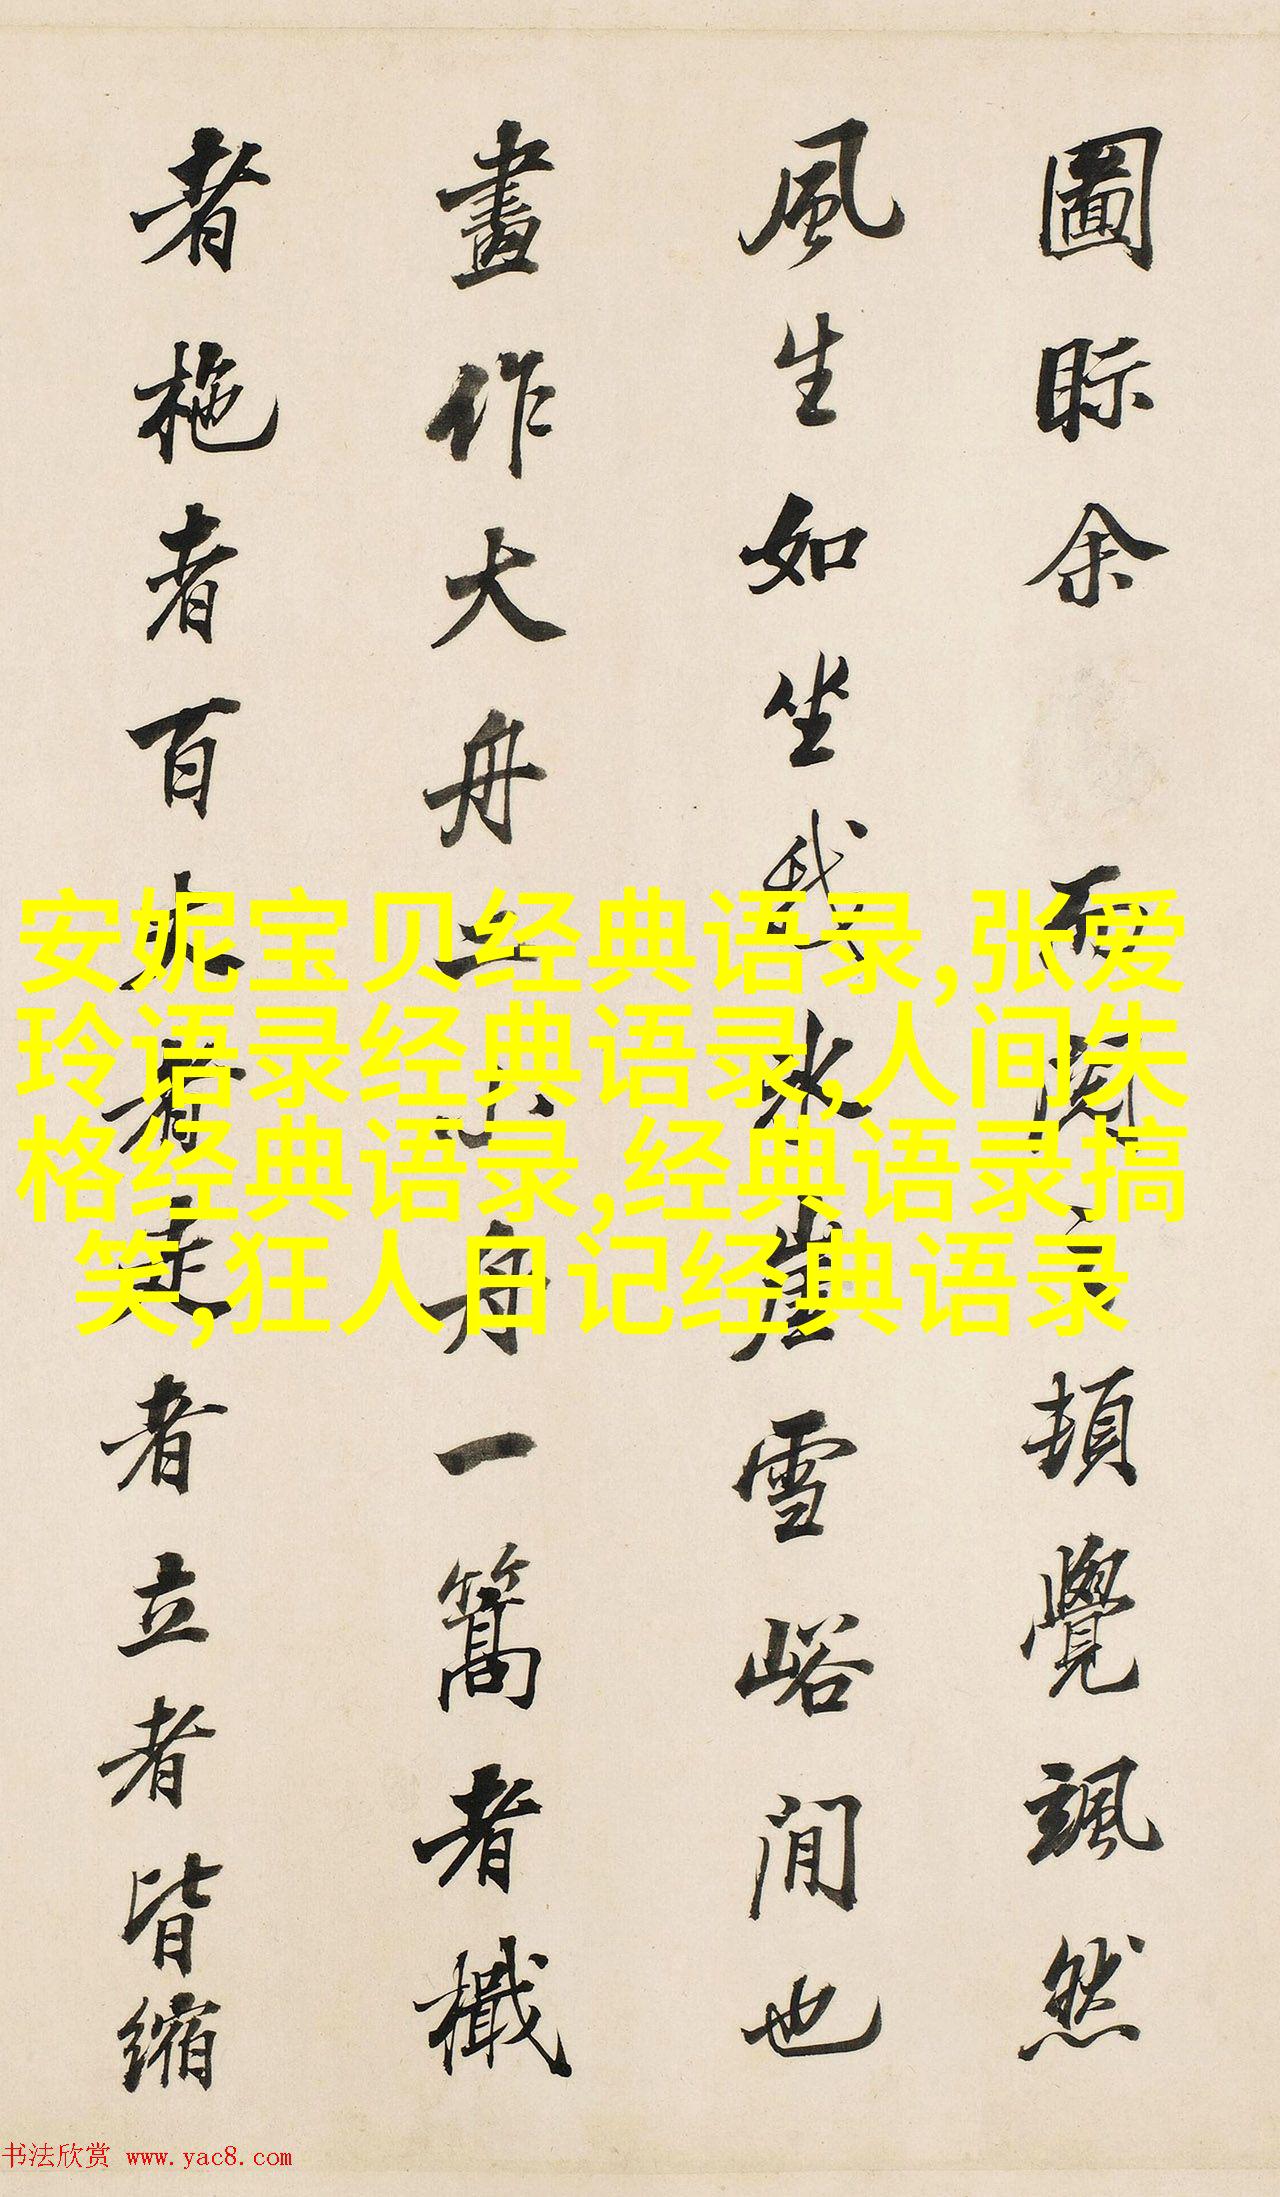 圖眎余而閱之頓覺颯然
風生如坐我冰崖雪峪間也
畫作大舟二小舟一篙者檝
者柂者百丈者走者立者皆縮
安妮宝贝经典语录,张爱
玲语录经典语录,人间失
格经典语录,经典语录搞
笑,狂人日记经典语录
书法欣赏 www.yac8.com